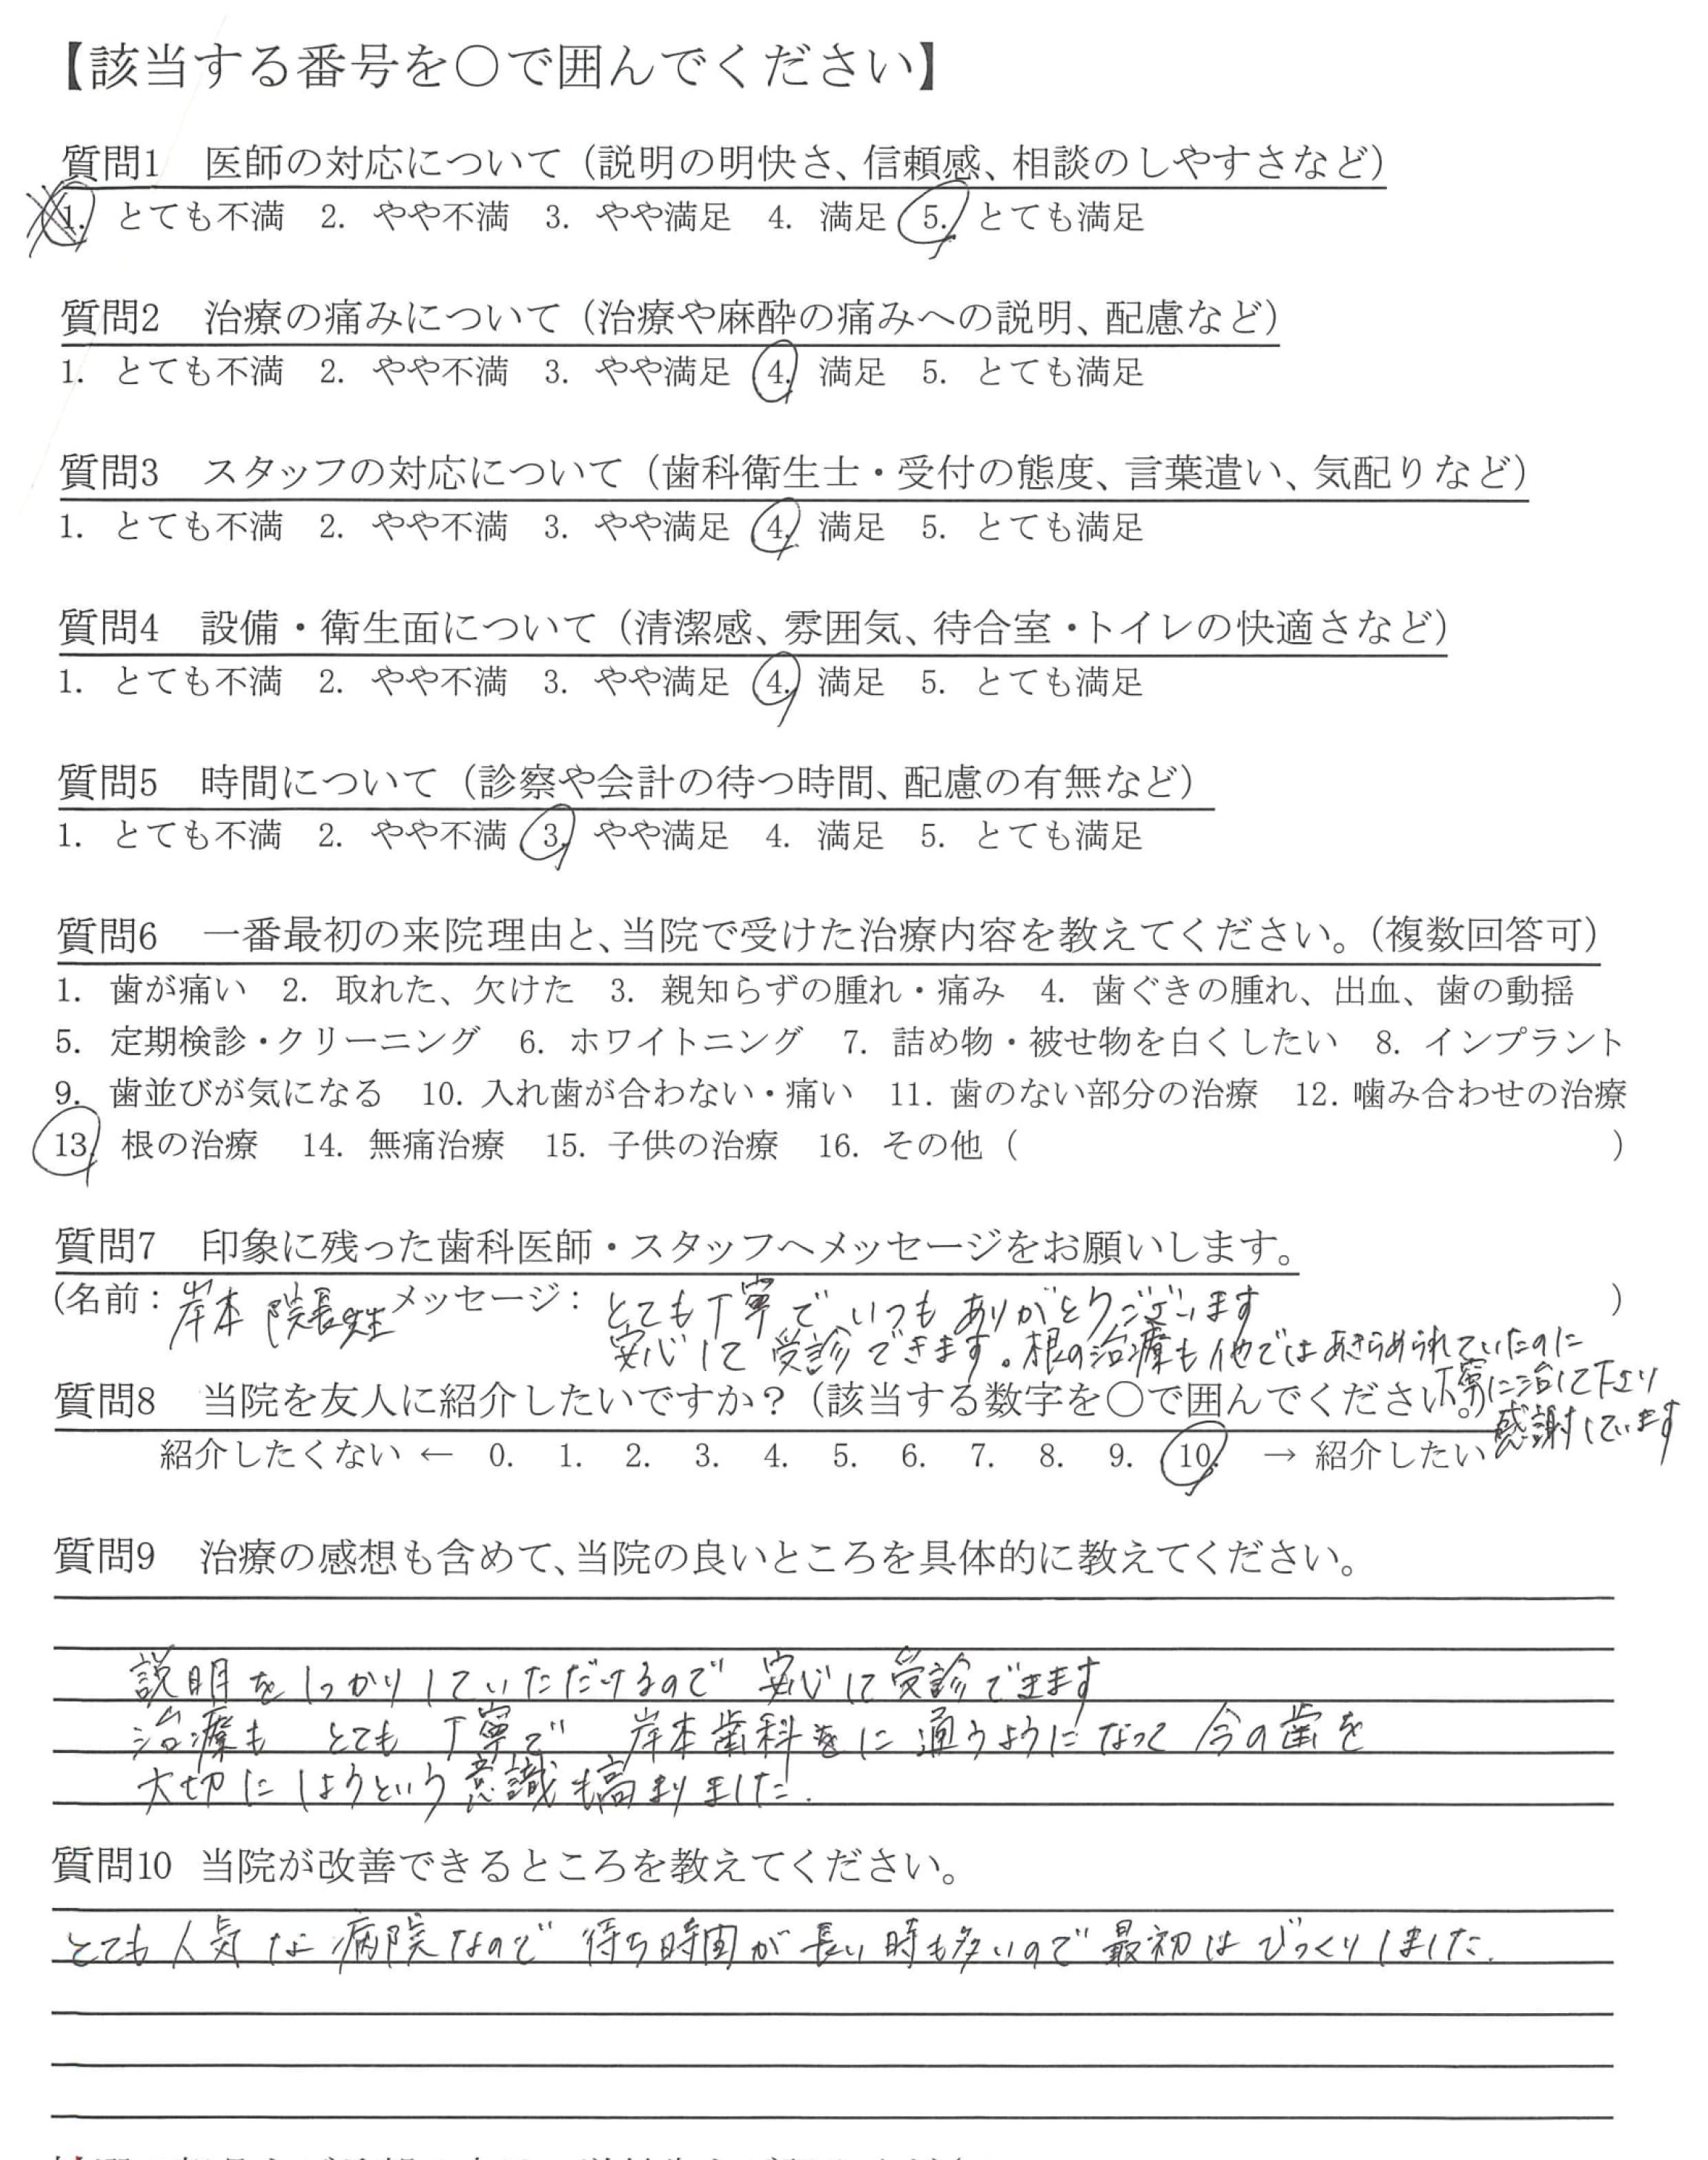 【該当する番号を○で囲んでください】
質問1　医師の対応について（説明の明快さ、信頼感、相談のしやすさなど）
1. とても不満　2. やや不満　3. やや満足　4. 満足　5. とても満足
質問2　治療の痛みについて（治療や麻酔の痛みへの説明、配慮など）
1. とても不満　2. やや不満　3. やや満足　4. 満足　5. とても満足
質問3　スタッフの対応について（歯科衛生士・受付の態度、言葉遣い、気配りなど）
1. とても不満　2. やや不満　3. やや満足　4. 満足　5. とても満足
質問4　設備・衛生面について（清潔感、雰囲気、待合室・トイレの快適さなど）
1. とても不満　2. やや不満　3. やや満足　4. 満足　5. とても満足
質問5　時間について（診察や会計の待つ時間、配慮の有無など）
1. とても不満　2. やや不満　3. やや満足　4. 満足　5. とても満足
質問6　一番最初の来院理由と、当院で受けた治療内容を教えてください。（複数回答可）
1. 歯が痛い　2. 取れた、欠けた　3. 親知らずの腫れ・痛み　4. 歯ぐきの腫れ、出血、歯の動揺
5. 定期検診・クリーニング　6. ホワイトニング　7. 詰め物・被せ物を白くしたい　8. インプラント
9. 歯並びが気になる　10. 入れ歯が合わない・痛い　11. 歯のない部分の治療　12. 噛み合わせの治療
13. 根の治療　14. 無痛治療　15. 子供の治療　16. その他（　　）
質問7　印象に残った歯科医師・スタッフへメッセージをお願いします。
（名前：岸本 院長先生 メッセージ：とても丁寧で いつも ありがとうございます　）
安心して 受診 できます。根の治療も 他では あきらめられていたのに
丁寧に治して下さり
感謝しています
質問8　当院を友人に紹介したいですか？（該当する数字を○で囲んでください。）
紹介したくない ← 0.　1.　2.　3.　4.　5.　6.　7.　8.　9.　10.　→ 紹介したい
質問9　治療の感想も含めて、当院の良いところを具体的に教えてください。
説明をしっかりしていただけるので 安心して受診できます
治療も とても 丁寧で 岸本歯科に 通うようになって 今の歯を
大切にしようという意識も高まりました.
質問10　当院が改善できるところを教えてください。
とても人気な病院なので 待ち時間が長い時も多いので最初はびっくりしました.